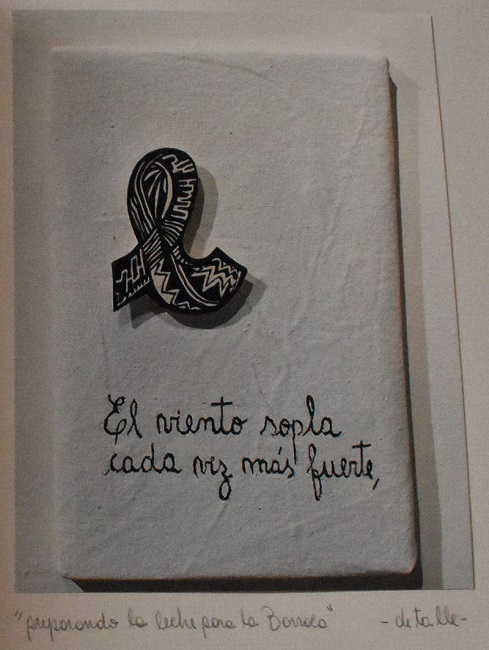 El viento sopla
cada vez más fuerte,
"preparando la leche para la Borrola" -detalle-